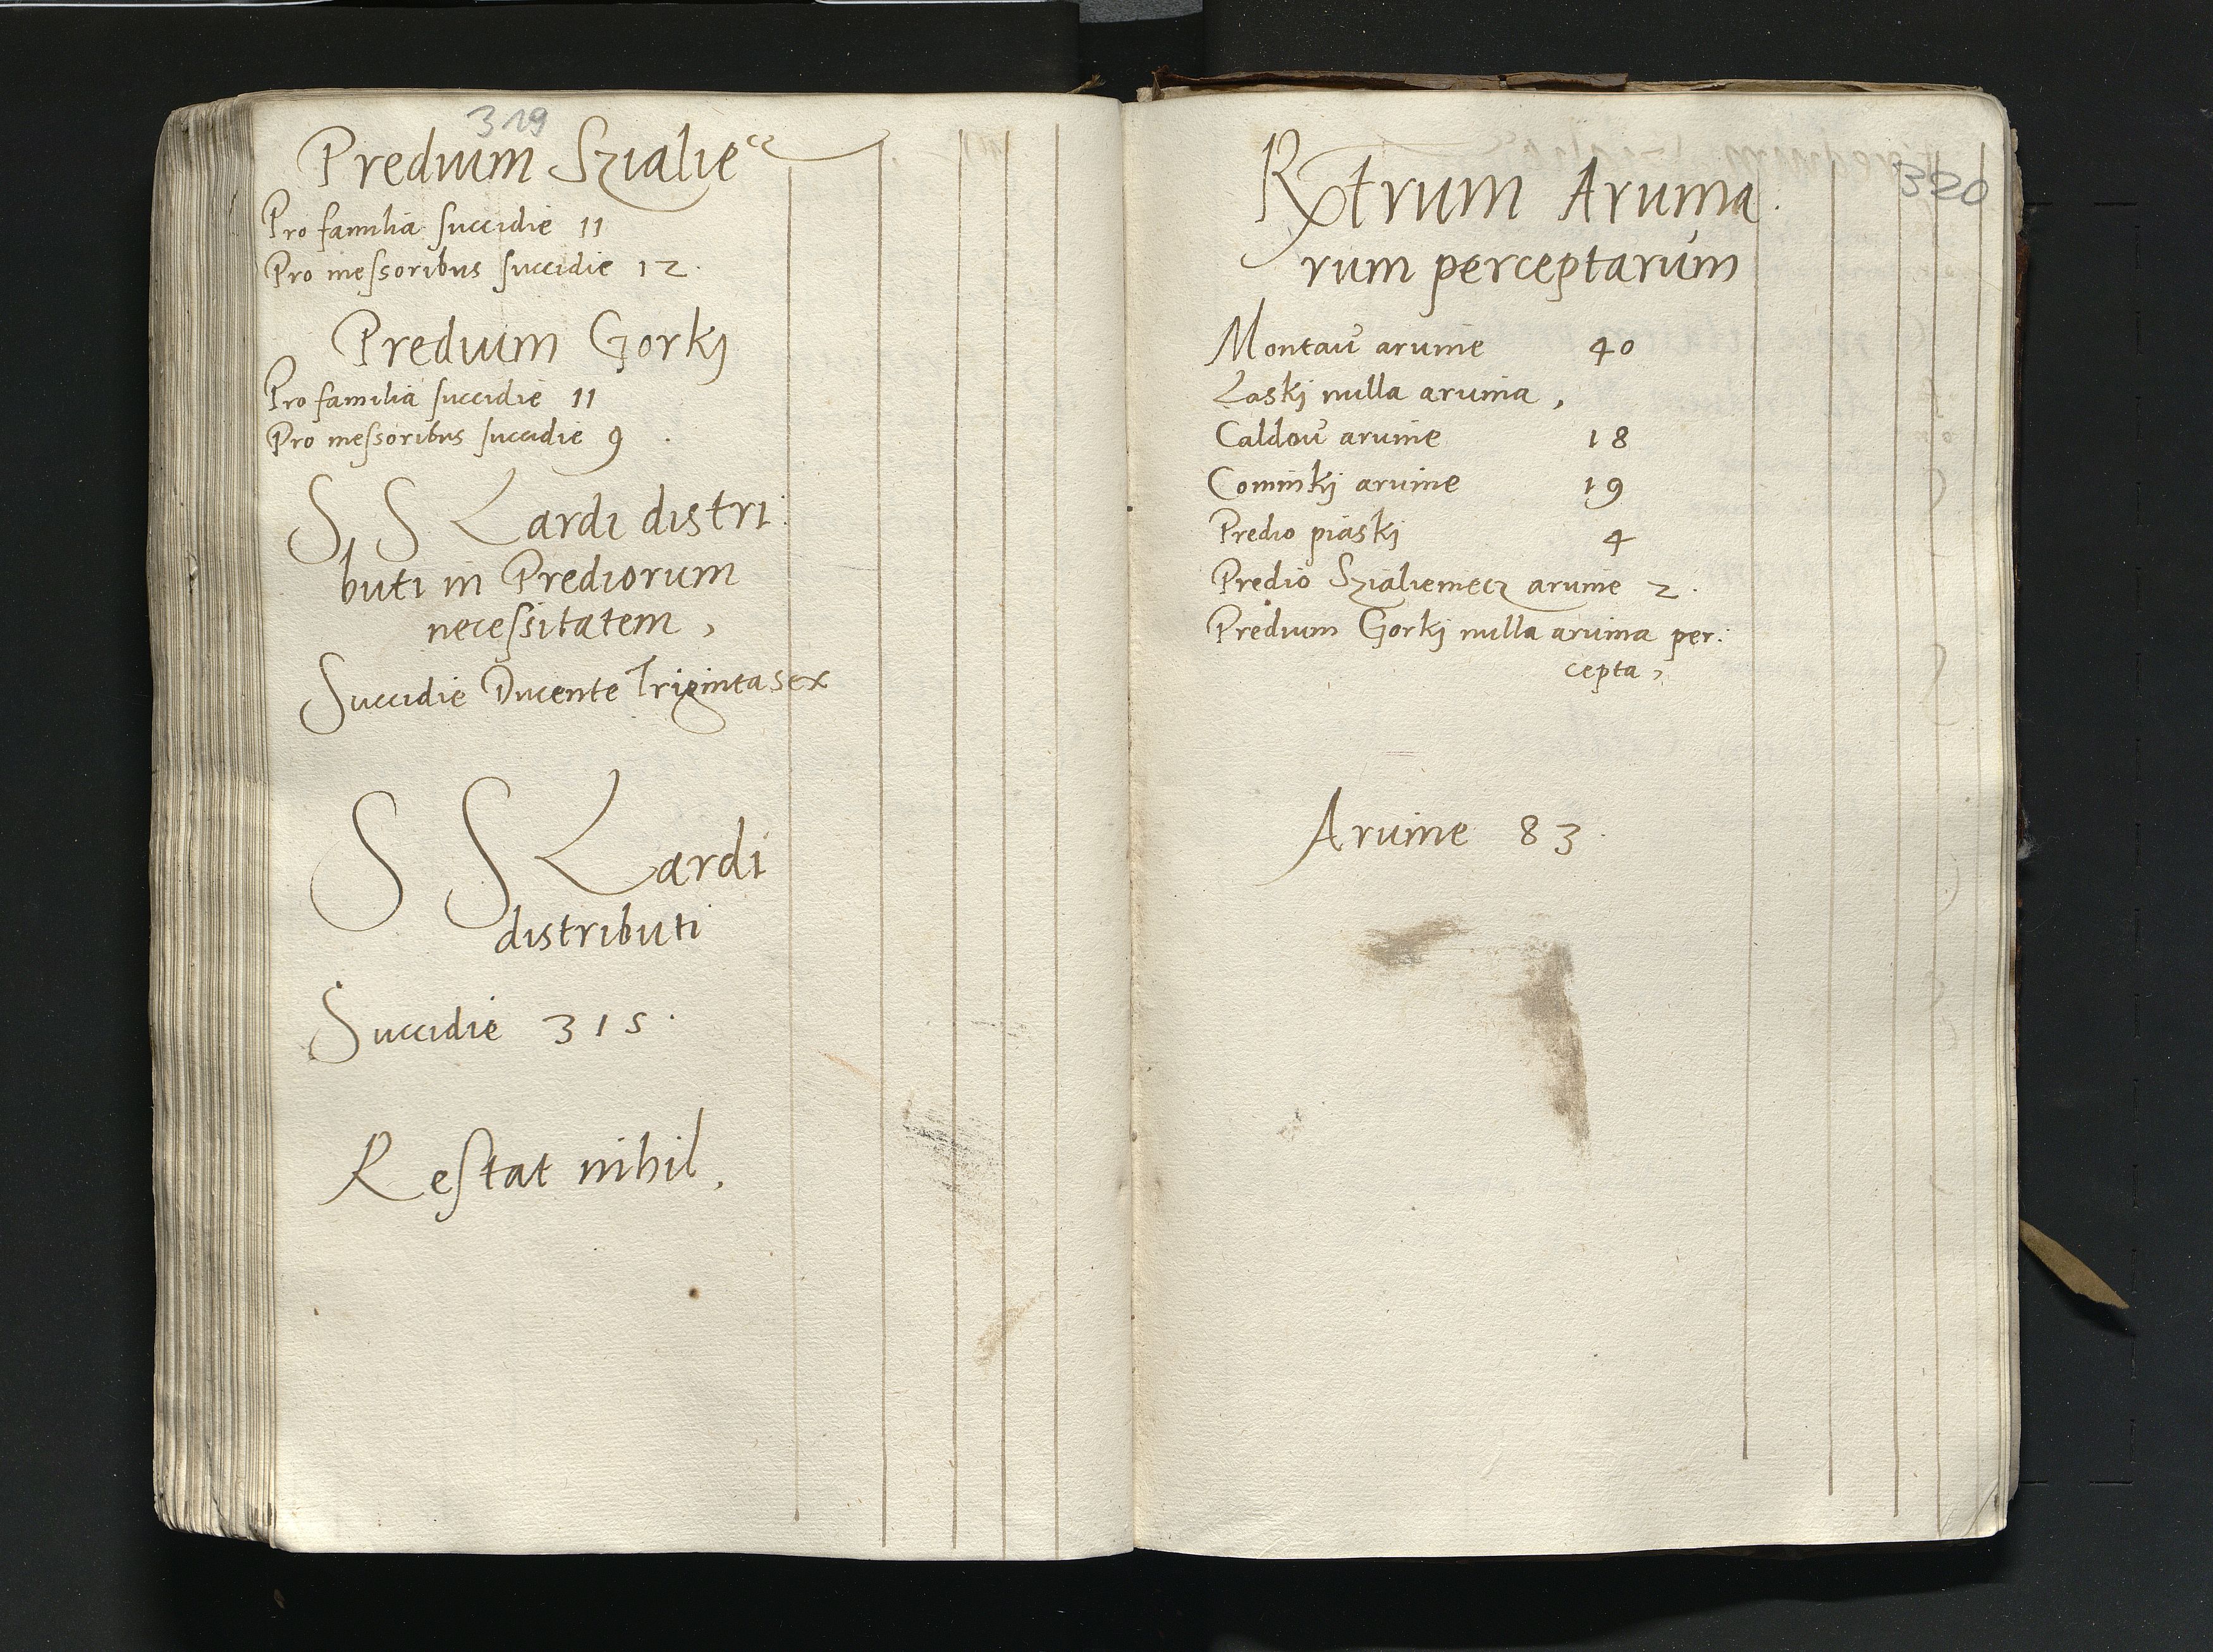 319
Predium Szialiecz
Pro familia succidie 11
Pro messoribus succidie 12.
Predium Gorkj
Pro familia succidie 11
Pro messoribus succidie 9.
S S Lardi distri:
buti in Prediorum
necessitatem,
Succidie Ducente Triginta sex
S S Lardi
distributi
Succidie 315.
Restat nihil,
320
Rxtrum Aruina.
rum perceptarum
Montau aruine 40
Laskj nulla aruina,
Caldou aruine 18
Cominkj aruine 19
Predio piaskj 4
Predio Szialiemecz aruine 2.
Predium Gorkj nulla aruina per:
cepta,
Aruine 83.